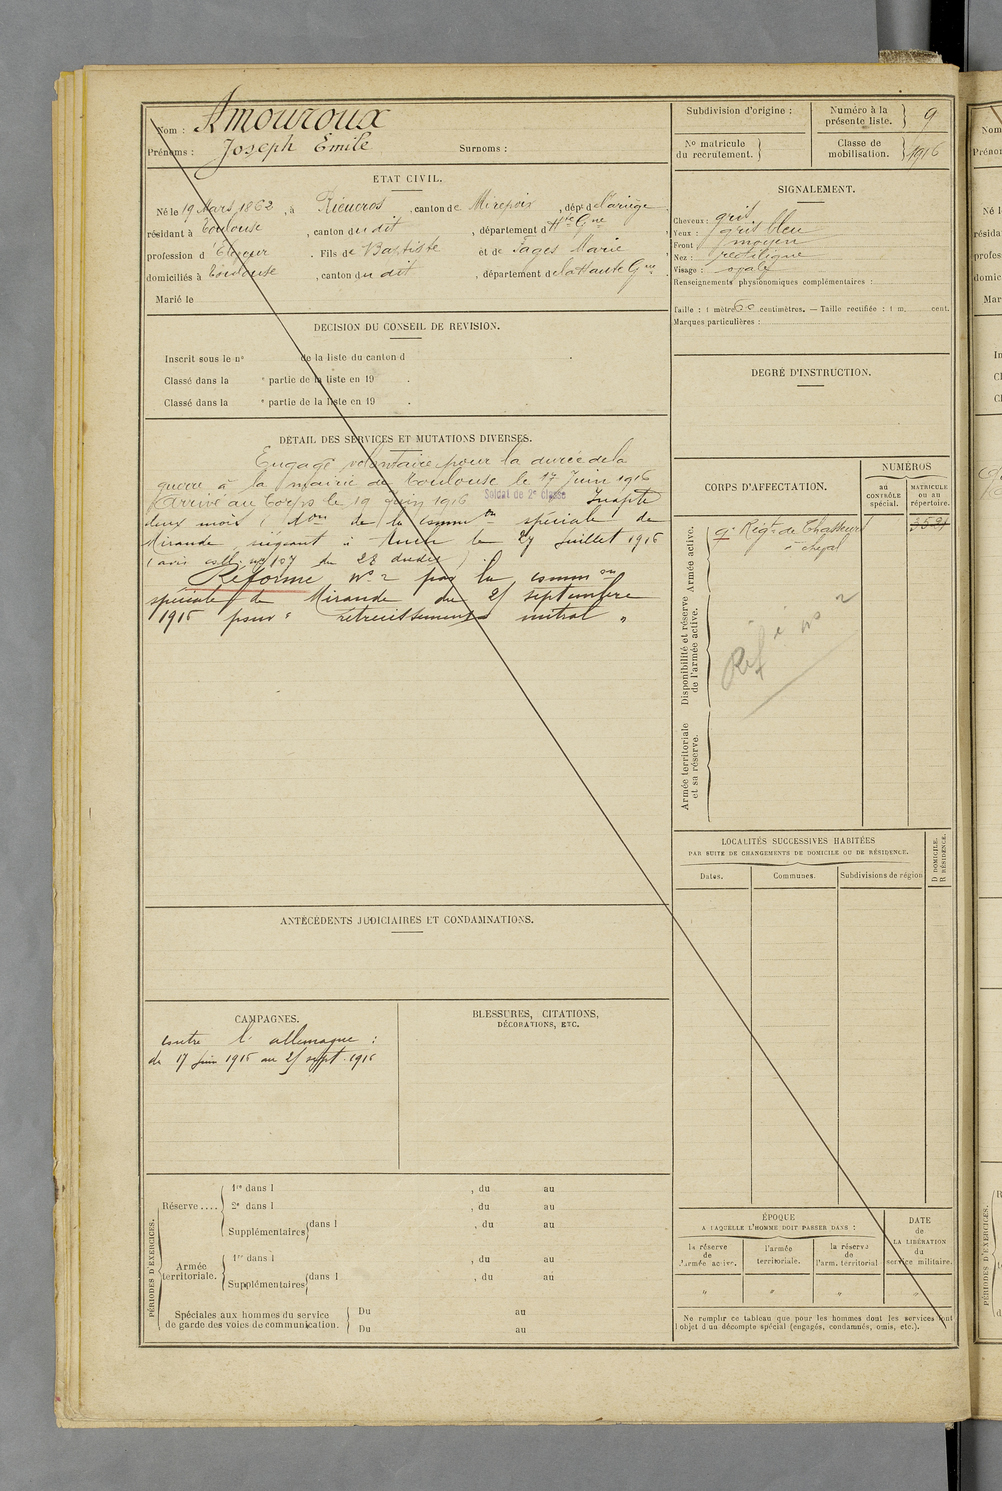 Nom : Amouroux
Prénoms : Joseph Emile Surnoms :
Subdivision d'origine :
Numéro à la présente liste. } 9
No matricule du recrutement. }
Classe de mobilisation. } 1916
ÉTAT CIVIL.
Né le 19 Mars 1862, à Rieucros, canton de Mirepoix, dépt d l'ariège
résidant à Toulouse, canton du dit, département d Hte Gne
profession d . Fils de Baptiste et de Fages Marie
domiciliés à Toulouse, canton du dit, département de la Haute Gne
Marié le
SIGNALEMENT.
Cheveux : gris
Yeux : gris bleu
Front : moyen
Nez : rectiligne
Visage : ovale
Renseignements physionomiques complémentaires :
Taille : 1 mètre 60 centimètres. — Taille rectifiée : 1 m. cent.
Marques particulières :
DÉCISION DU CONSEIL DE REVISION.
Inscrit sous le no de la liste du canton d
Classé dans la e partie de la liste en 19 .
Classé dans la e partie de la liste en 19 .
DEGRÉ D'INSTRUCTION.
DÉTAIL DES SERVICES ET MUTATIONS DIVERSES.
Engagé volontaire pour la durée de la
guerre à la mairie de Toulouse le 17 Juin 1916
Arrivé au Corps le 19 Juin 1916 Soldat de 2e classe Inapte
deux mois ( don de la common spéciale de
Mirande siégeant à Auch le 27 Juillet 1916
(avis no 107 du 28 dudit)
Réformé no 2 par la common
spéciale de Mirande du 25 septembre
1916 pour " rétrécissement mitral "
CORPS D'AFFECTATION.
NUMÉROS
au CONTRÔLE spécial.
MATRICULE ou au répertoire.
Armée active.
9e Régt de Chasseurs
à cheval
Disponibilité et réserve de l'armée active.
Réf é no 2
Armée territoriale et sa réserve.
LOCALITÉS SUCCESSIVES HABITÉES
PAR SUITE DE CHANGEMENTS DE DOMICILE OU DE RÉSIDENCE.
D DOMICILE.
R RÉSIDENCE.
Dates. Communes. Subdivisions de région
ANTÉCÉDENTS JUDICIAIRES ET CONDAMNATIONS.
CAMPAGNES.
contre l'allemagne :
du 17 Juin 1916 au 25 sept. 1916
BLESSURES, CITATIONS,
DÉCORATIONS, ETC.
PÉRIODES D'EXERCICES.
Réserve ....
1re dans l , du au
2e dans l , du au
Supplémentaires { dans l , du au
Armée territoriale.
1re dans l , du au
Supplémentaires { dans l , du au
Spéciales aux hommes du service
de garde des voies de communication.
Du au
Du au
ÉPOQUE
A LAQUELLE L'HOMME DOIT PASSER DANS :
la réserve de l'armée active.
l'armée territoriale.
la réserve de l'arm. territorial
DATE de LA LIBÉRATION du service militaire.
" " " "
Ne remplir ce tableau que pour les hommes dont les services font
l'objet d'un décompte spécial (engagés, condamnés, omis, etc.).